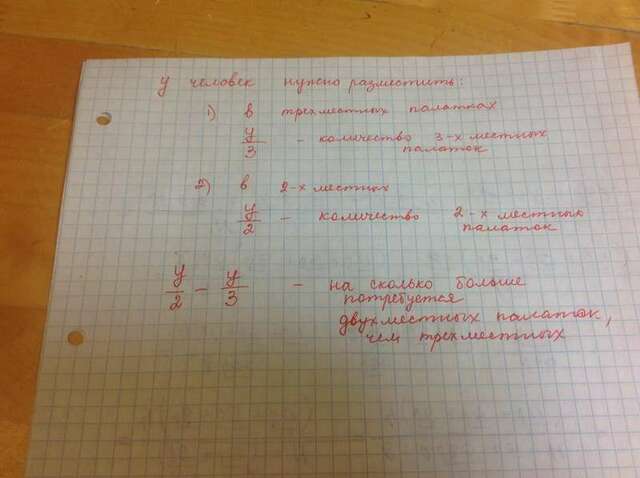 у человек нужно разместить:
1) в трехместных палатках
у/3 - количество 3-х местных
палаток
2) в 2-х местных
у/2 - количество 2-х местных
палаток
у/2 - у/3 - на сколько больше
потребуется
двухместных палаток,
чем трехместных